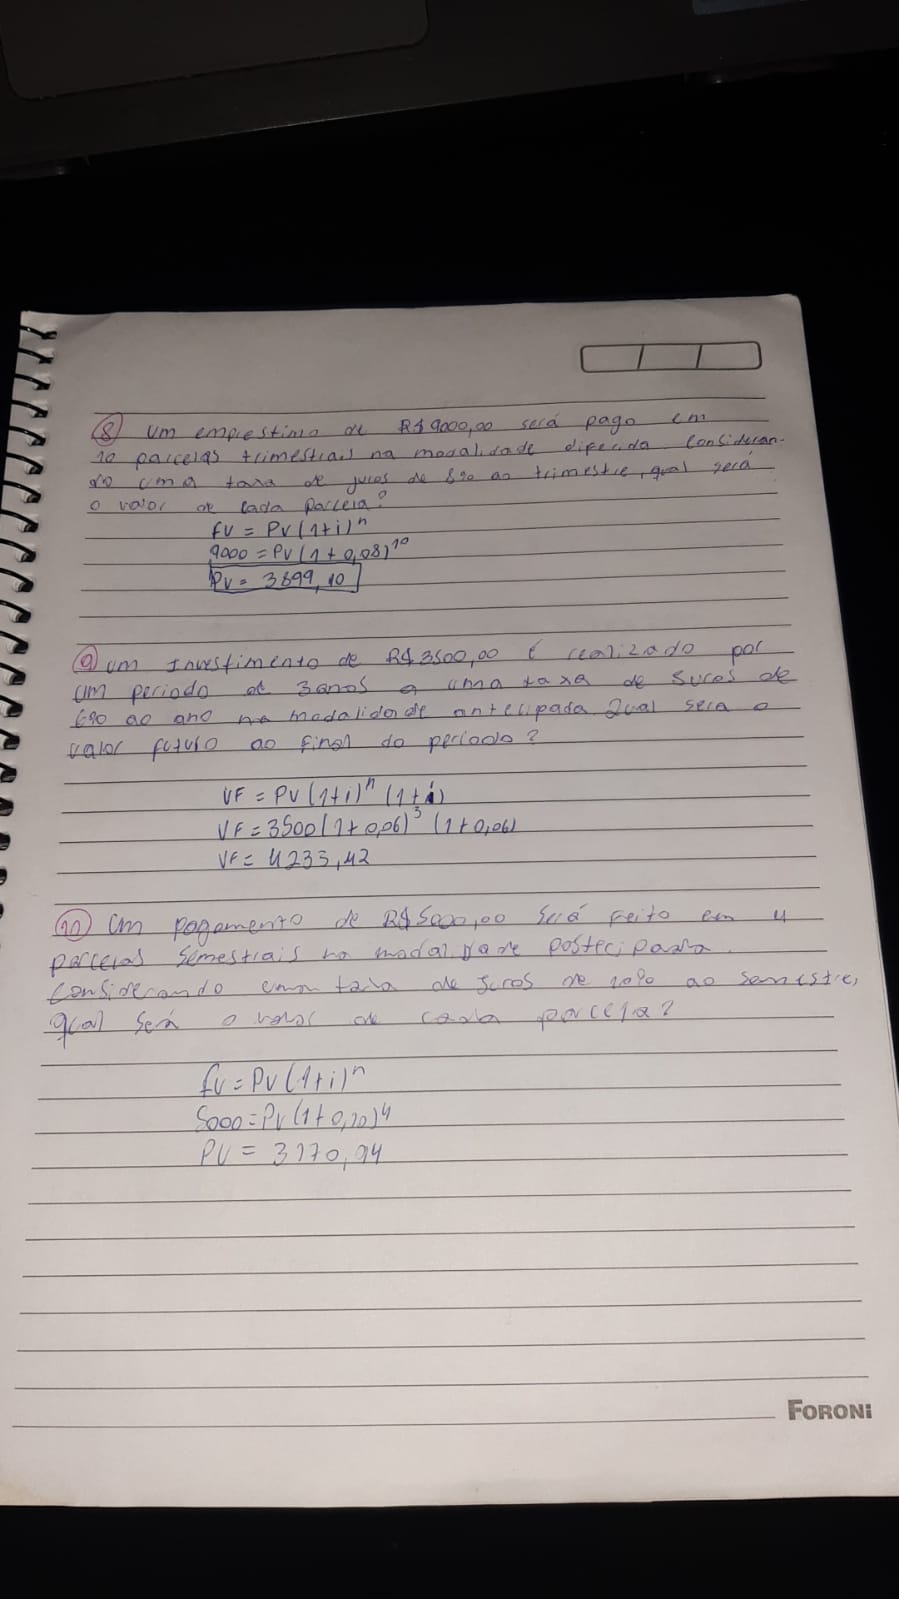 8 Um emprestimo de R$9000,00 será pago em
10 parcelas trimestrais na modalidade diferida Consideran-
do uma taxa de juros de 8% ao trimestre, qual será
o valor de cada parcela?
FV = PV(1+i)^n
9000 = PV(1+0,08)^10
PV = 3899,10
9 Um Investimento de R$3500,00 É realizado por
um periodo de 3 anos a uma taxa de Juros de
6% ao ano na modalidade antecipada Qual sera o
valor futuro ao final do período?
VF = PV(1+i)^n (1+i)
VF = 3500(1+0,06)^3 (1+0,06)
VF = 4233,42
10 Um pagamento de R$5000,00 Será Feito em 4
parcelas Semestrais na modalidade postecipada.
Considerando uma taxa de Juros de 10% ao semestre,
qual Será o valor de cada parcela?
FV = PV(1+i)^n
5000 = PV(1+0,10)^4
PV = 3170,94
FORONI